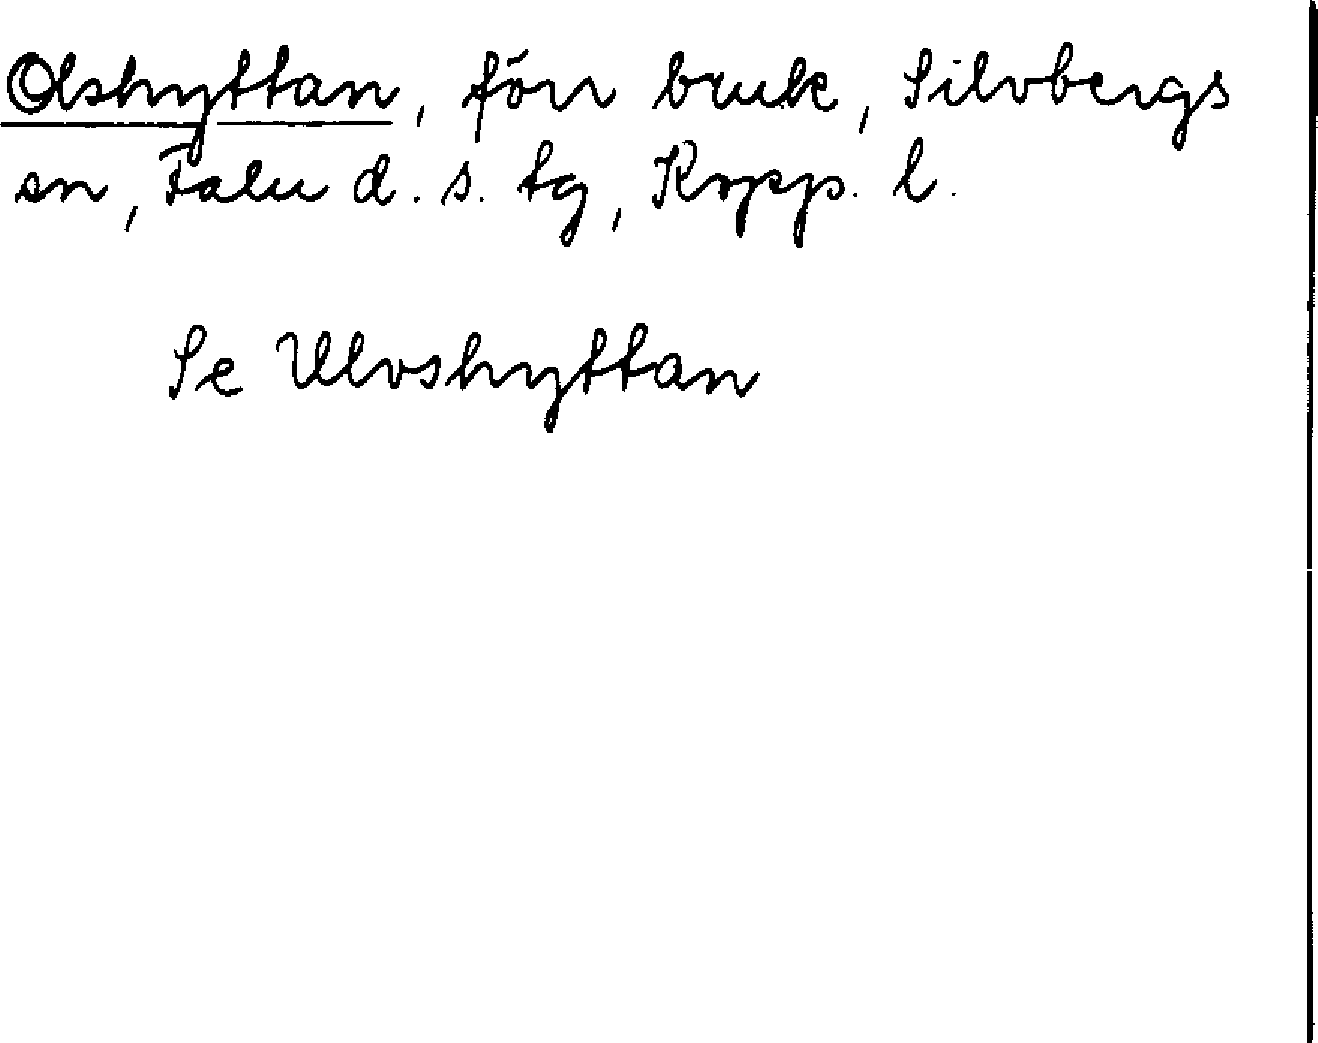 Olshyttan, förr bruk, Silvbergs
sn, Falu d. s. tg, Kopp. l.
Se Ulvshyttan